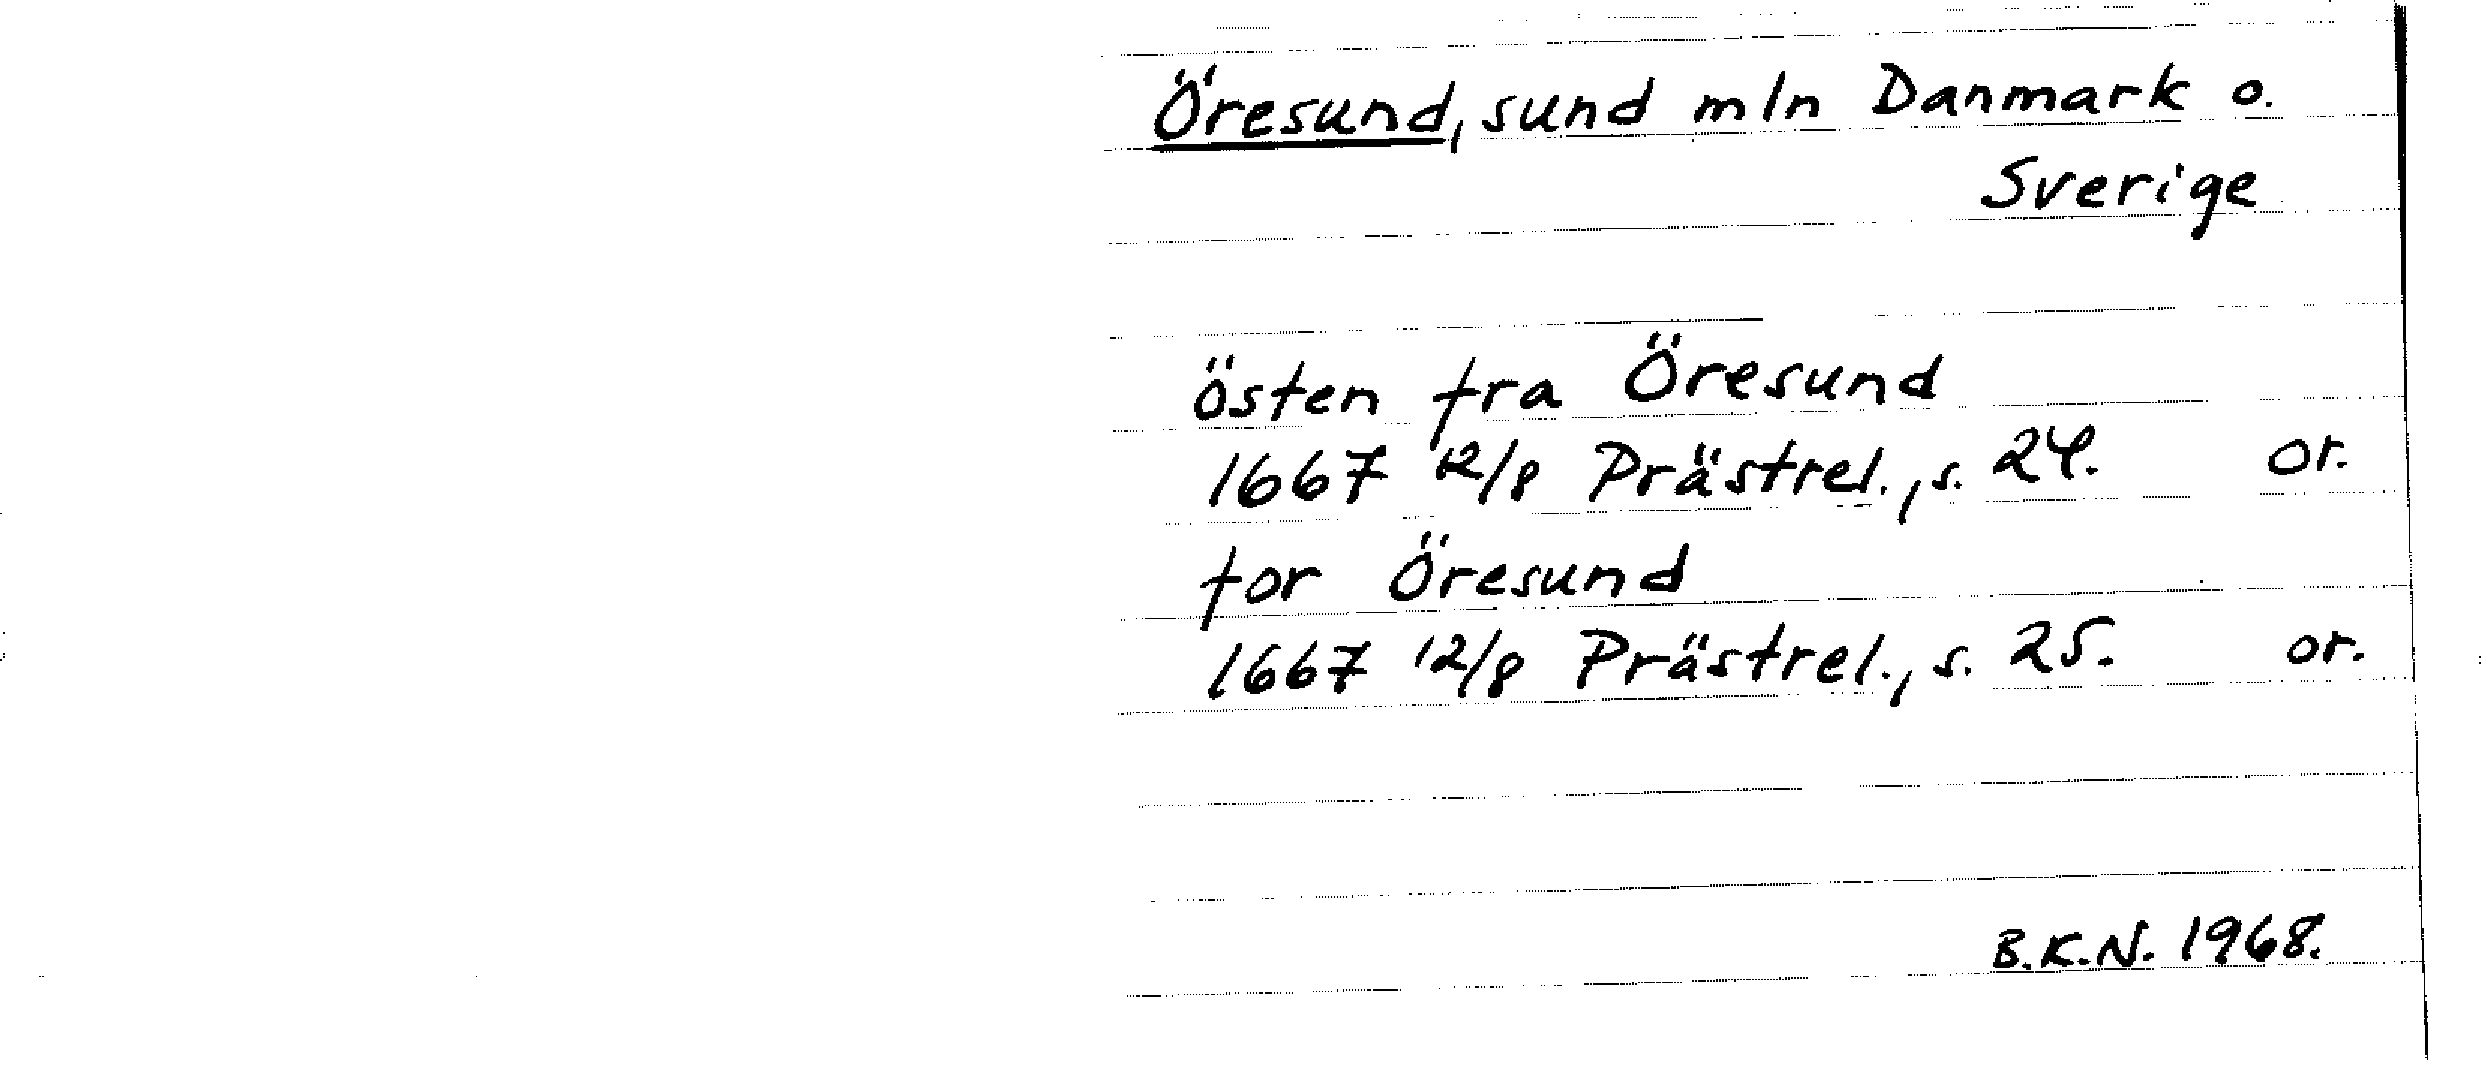 Öresund, sund mln Danmark o.
Sverige
östen fra Öresund
1667 12/8 Prästrel., s. 24. or.
for Öresund
1667 12/8 Prästrel., s. 25. or.
B.K.N. 1968.